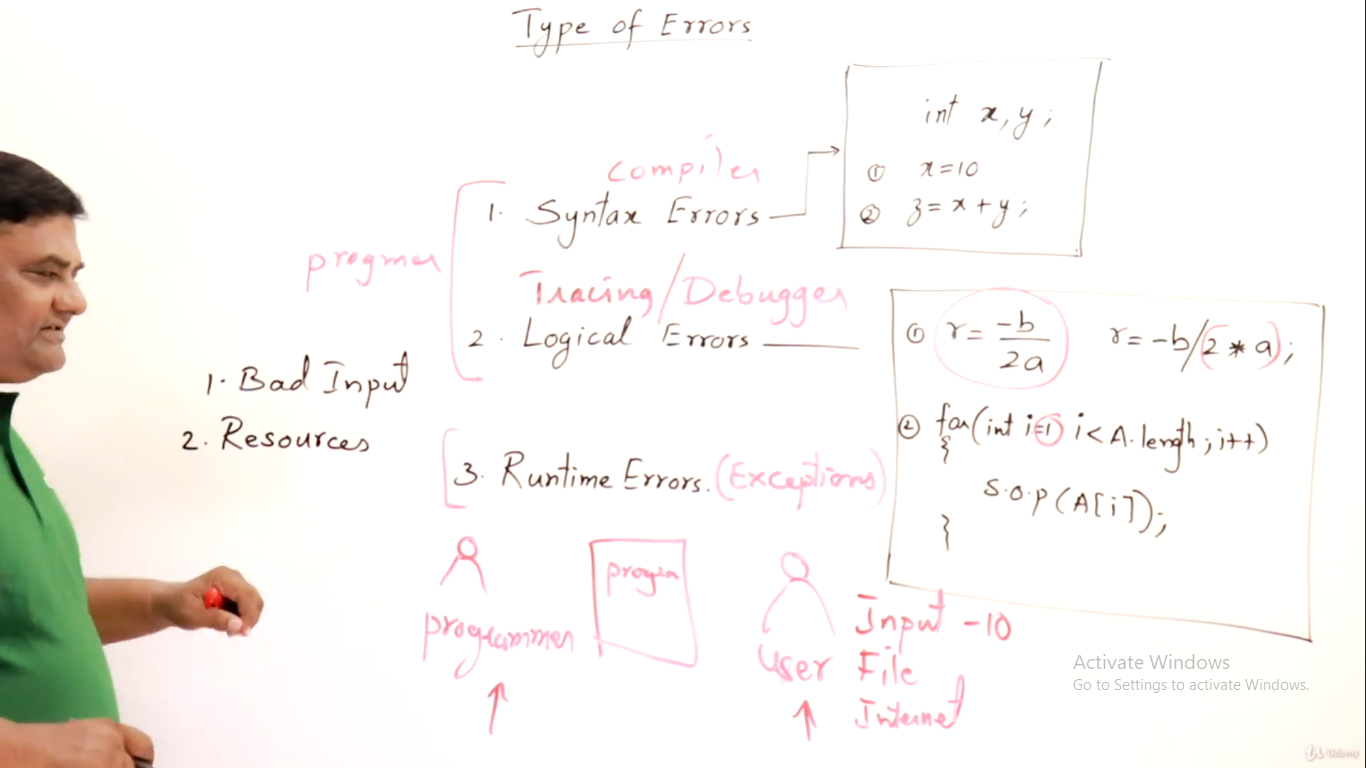 Type of Errors
int x, y;
① x=10
② z= x + y;
compiler
1. Syntax Errors
progmer
Tracing/Debugger
2. Logical Errors
① r= -b
2a
r= -b/(2 * a);
② for(int i=1 i< A.length; i++)
{
S.O.P(A[i]);
}
1. Bad Input
2. Resources
3. Runtime Errors. (Exceptions)
progra
programmer
user
Input -10
File
Internet
Activate Windows
Go to Settings to activate Windows.
Udemy